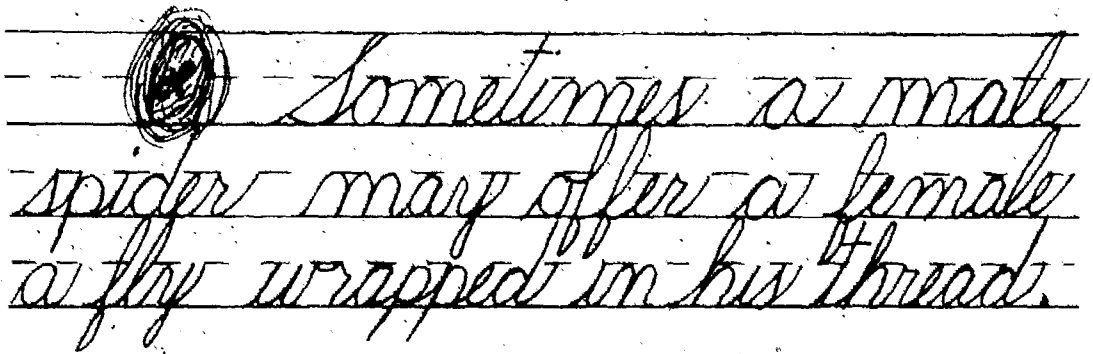 Sometimes a male
spider may offer a female
a fly wrapped in his thread.